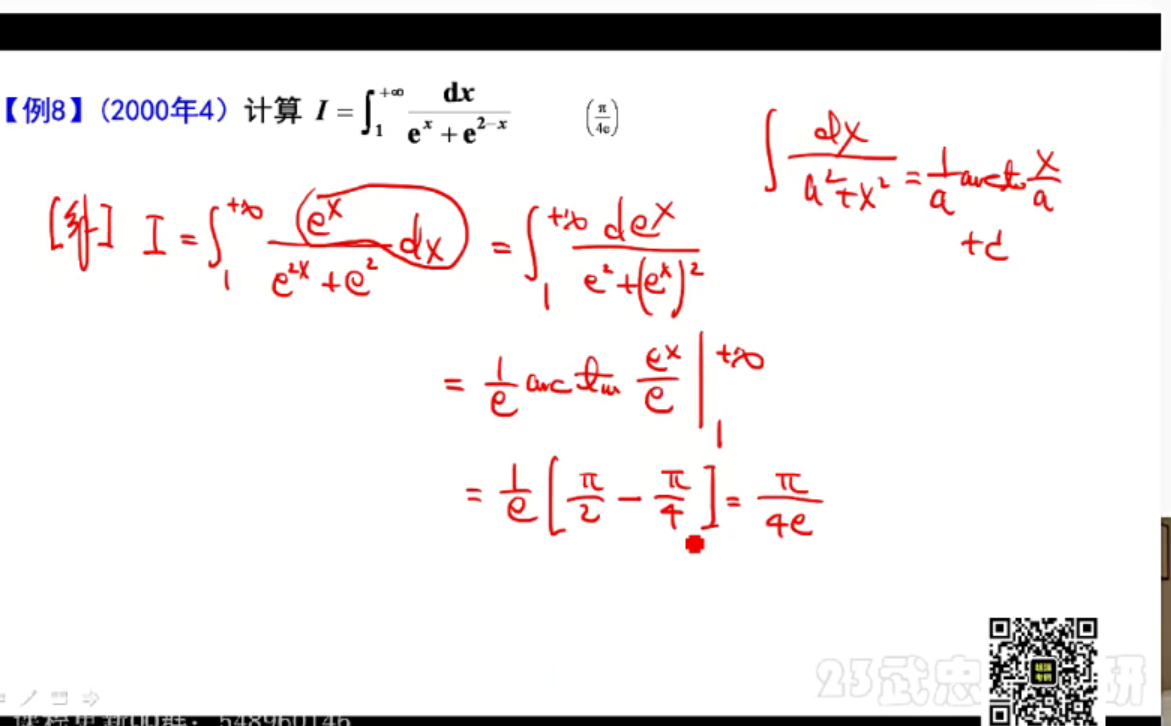 【例8】(2000年4) 计算 I = ∫₁^{+∞} dx / (e^x + e^{2-x}) (π/4e)
∫ dx / (a² + x²) = 1/a arctan x/a + C
[解] I = ∫₁^{+∞} e^x / (e^{2x} + e²) dx = ∫₁^{+∞} de^x / (e² + (e^x)²)
= 1/e arctan e^x/e |₁^{+∞}
= 1/e [π/2 − π/4] = π/4e
23武忠 研